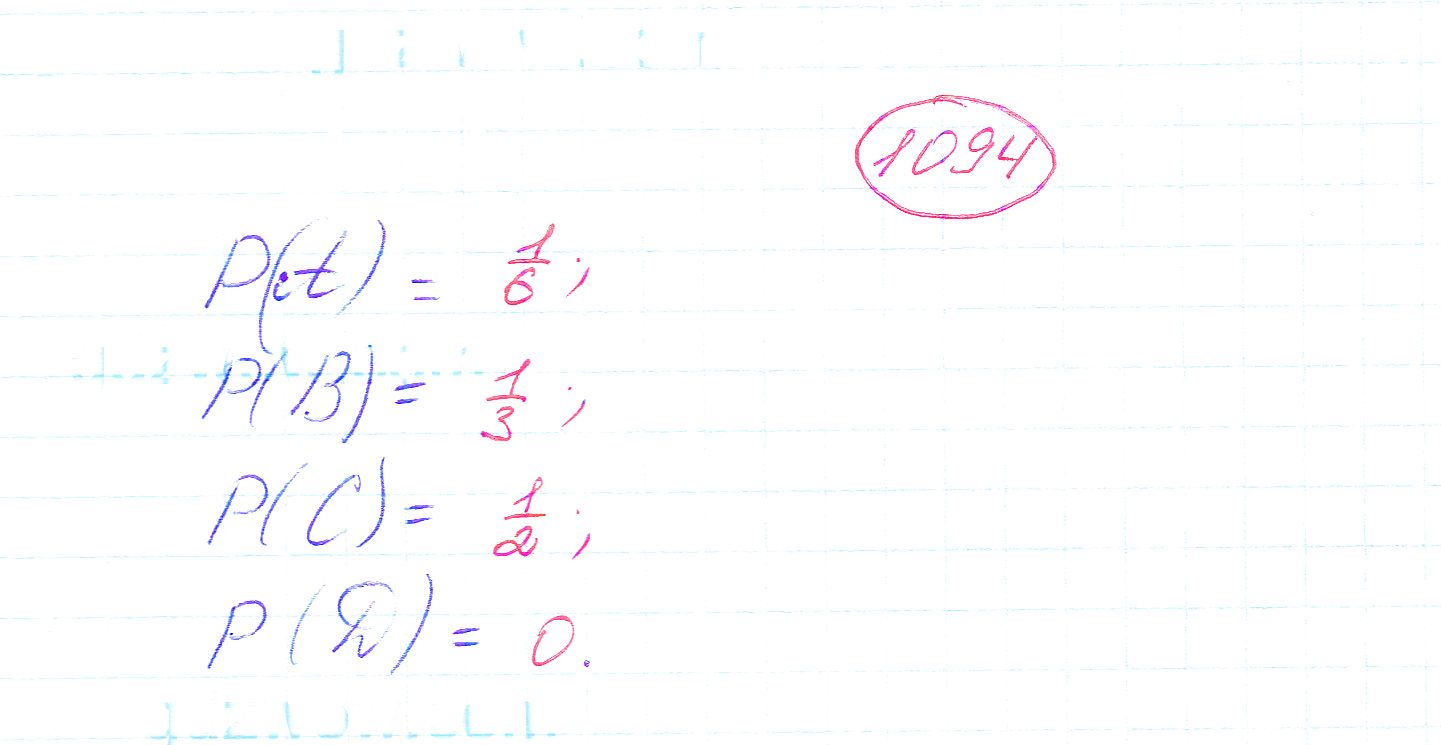 1094
P(A) = 1/6;
P(B) = 1/3;
P(C) = 1/2;
P(D) = 0.